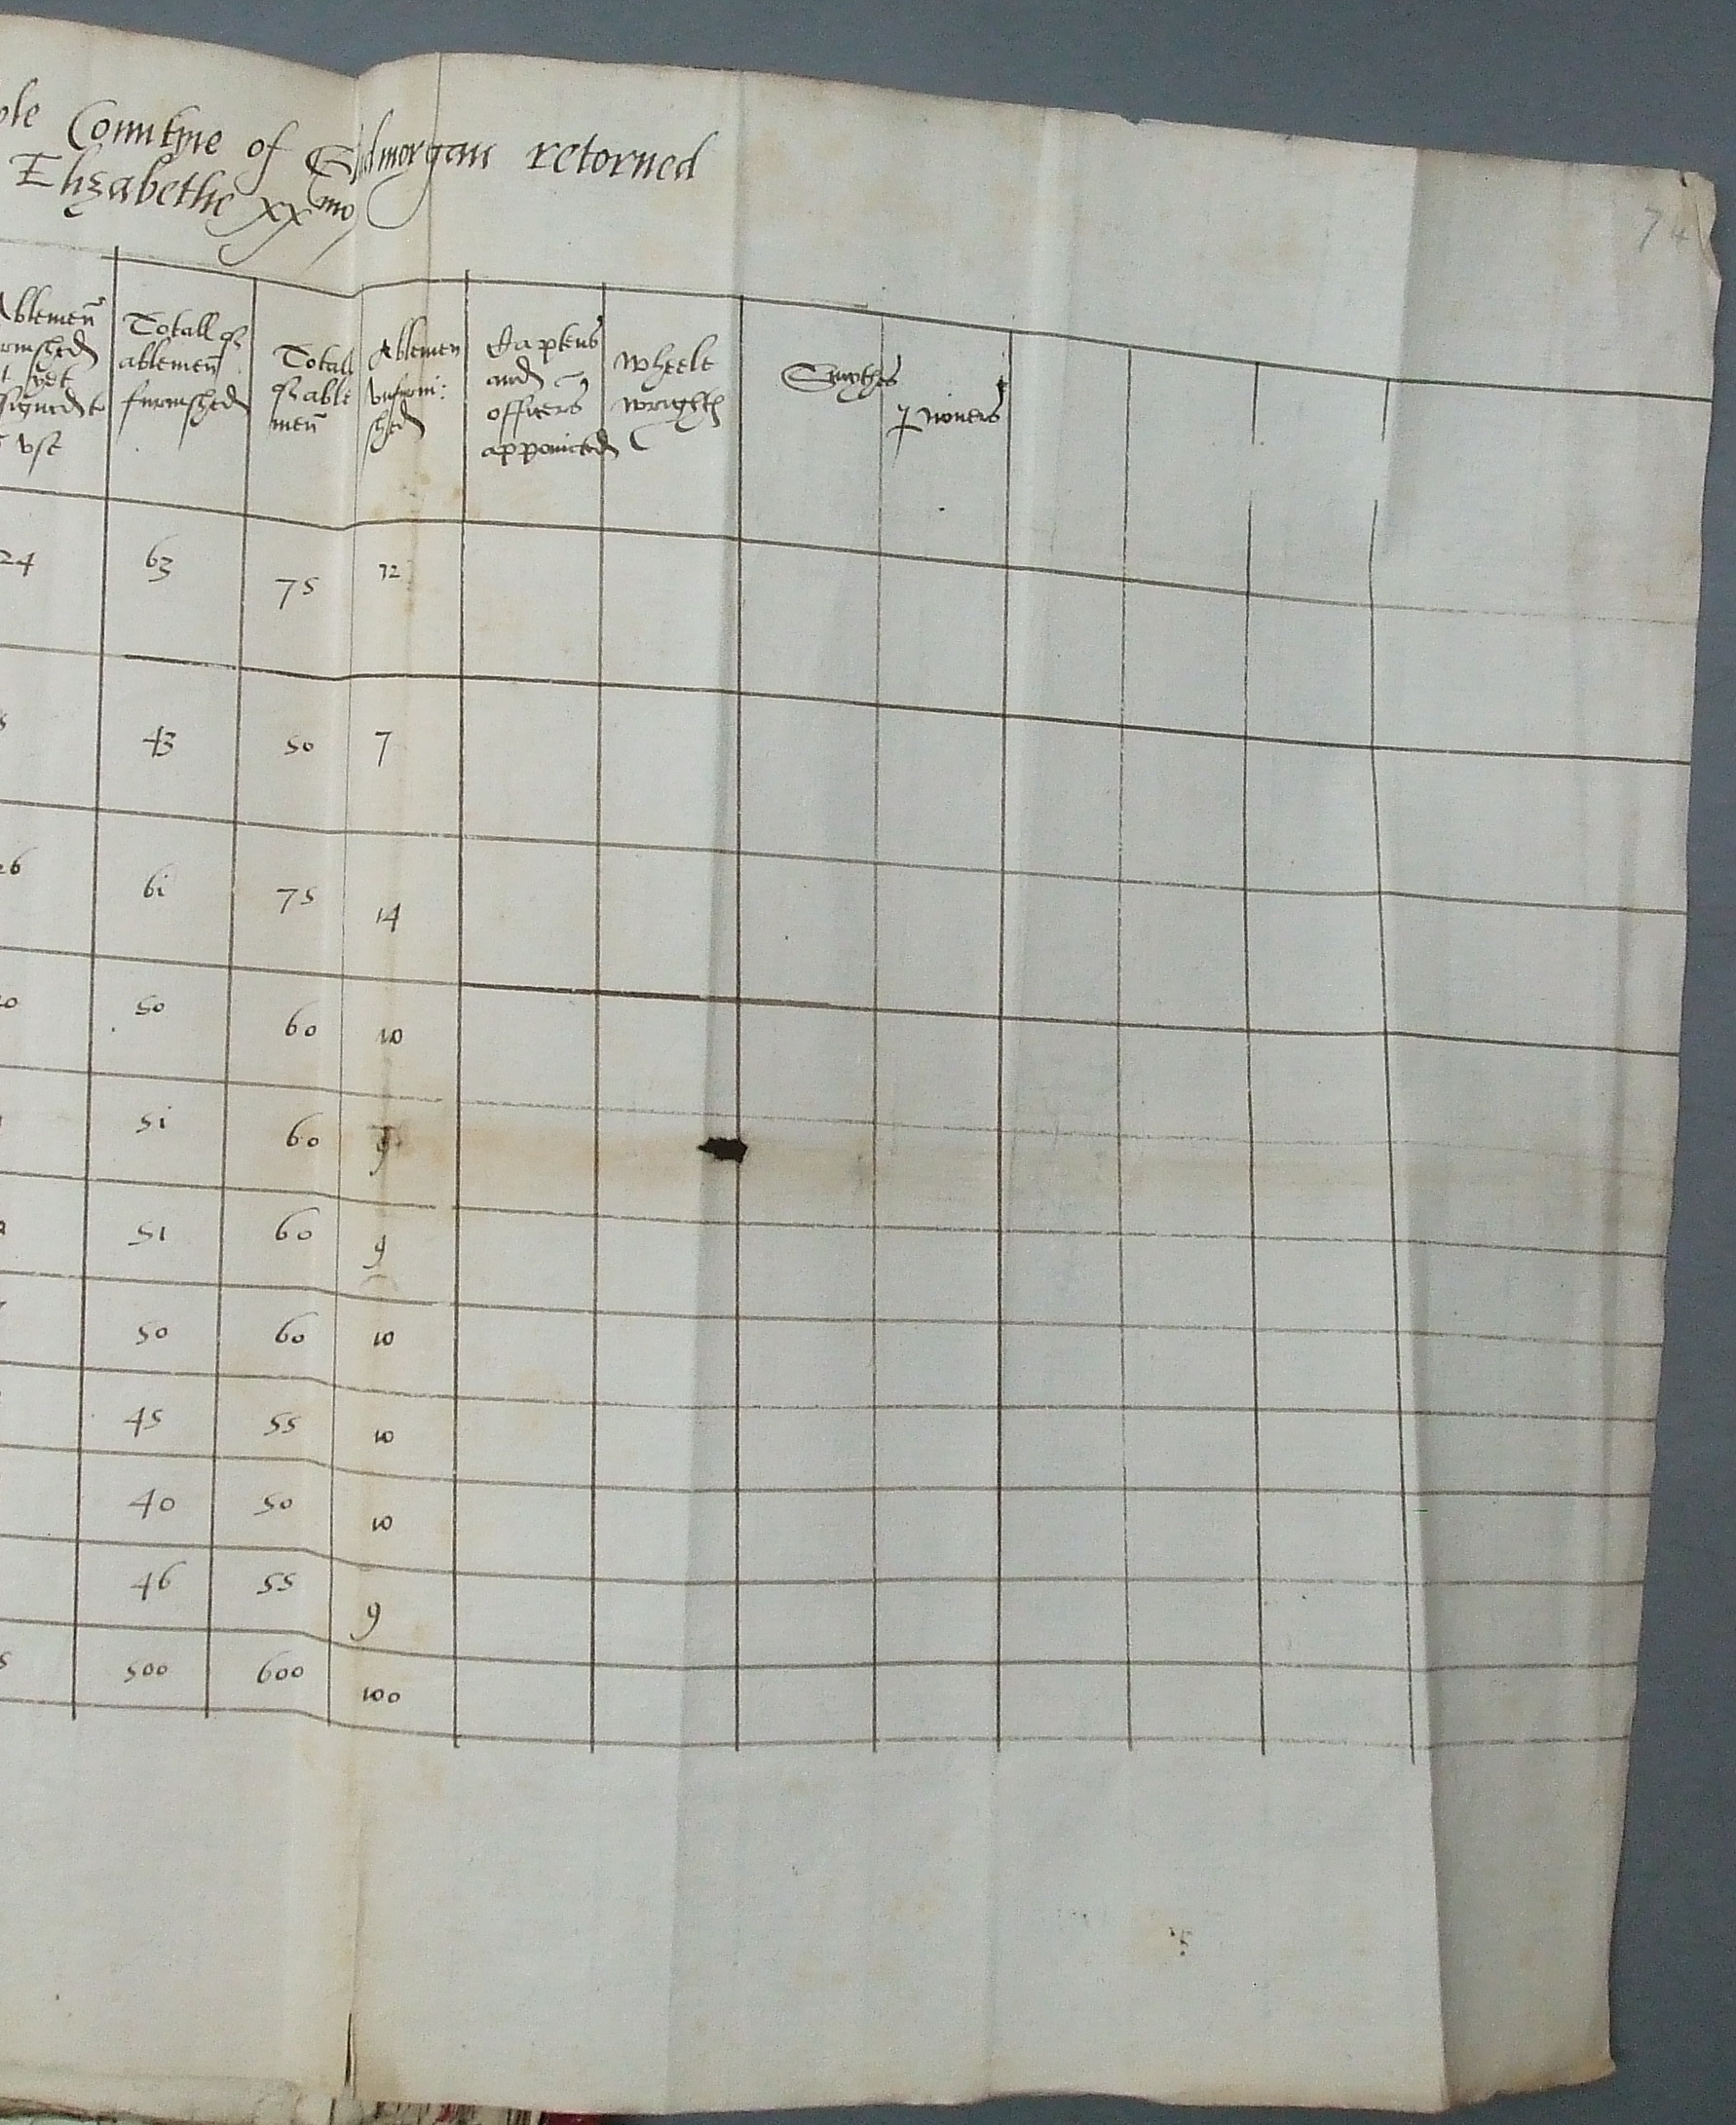 ole Countye of Gldmorgan retorned
Elizabethe xxmo
74
Ablemen furnished yet signed to vse
Totall of ablemen furnished
Totall of able men
Ablemen vnfurni: shed
Captens and officers appointed
wheele wrights
Smythes
pioners
24 63 75 12
43 50 7
26 61 75 14
50 60 10
51 60 9
51 60 9
50 60 10
45 55 10
40 50 10
46 55 9
500 600 100